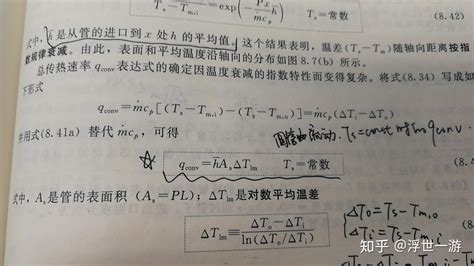 (Tₛ − Tₘ)/(Tₛ − Tₘ,ᵢ) = exp(−Px/ṁcₚ h̄)  Tₛ = 常数 (8.42)
式中, h̄ 是从管的进口到 x 处 h 的平均值。这个结果表明，温差(Tₛ−Tₘ)随轴向距离按指
数规律衰减。由此，表面和平均温度沿轴向的分布如图 8.7(b) 所示。
总传热速率 q_conv 表达式的确定因温度衰减的指数特性而变得复杂。将式(8.34) 写成如
下形式
q_conv = ṁcₚ[(Tₛ−Tₘ,ᵢ)−(Tₛ−Tₘ,ₒ)] = ṁcₚ(ΔTᵢ−ΔTₒ)
并用式(8.41a) 替代 ṁcₚ, 可得
Ts=const
q_conv = h̄AₛΔT_lm  Tₛ = 常数
式中, Aₛ 是管的表面积 (Aₛ=PL); ΔT_lm 是对数平均温差
ΔT_lm ≡ (ΔTₒ−ΔTᵢ)/ln(ΔTₒ/ΔTᵢ)
ΔTo=Ts−Tm,o
ΔTi=Ts−Tm,i
知乎 @浮世一游